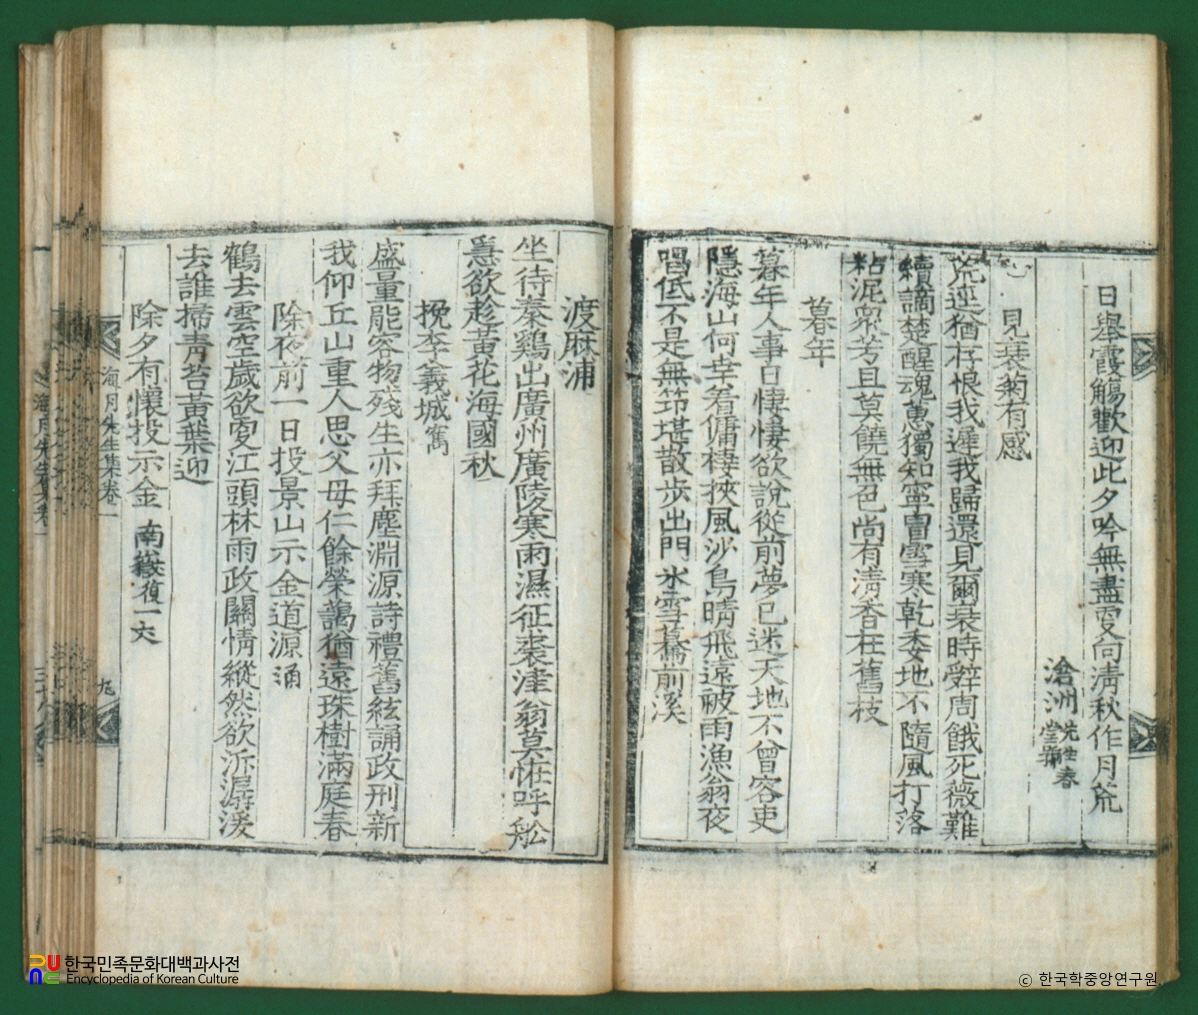 日舉霞觴歡迎此夕吟無盡更向淸秋作月荒
滄洲
先生春
堂號
見衰菊有感
荒逕猶存恨我遲我歸還見爾衰時辭周餓死薇難
續謫楚醒魂蕙獨知寧冒雪寒乾委地不隨風打落
粘泥衆芳且莫饒無色尙有淸香在舊枝
暮年
暮年人事日悽悽欲說從前夢已迷天地不曾容吏
隱海山何幸着傭棲挾風沙鳥晴飛遠被雨漁翁夜
唱低不是無笻堪散步出門氷雪驀前溪
渡麻浦
坐待秦鷄出廣州廣陵寒雨濕征裘津翁莫怪呼船
急欲趁黃花海國秋
挽李義城寯
盛量能容物殘生亦拜塵淵源詩禮舊絃誦政刑新
我仰丘山重人思父母仁餘榮藹猶遠珠樹滿庭春
除夜前一日投景山示金道源涌
鶴去雲空歲欲更江頭林雨政關情縱然欲泝潺湲
去誰掃靑苔黃葉迎
除夕有懷投示金南嶽復一 六
海月先生集卷一
九
한국민족문화대백과사전
Encyclopedia of Korean Culture
ⓒ 한국학중앙연구원